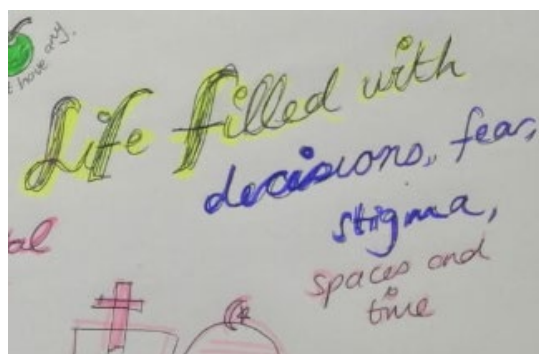 have any.
Life filled with
decisions, fear,
stigma,
spaces and
time
al